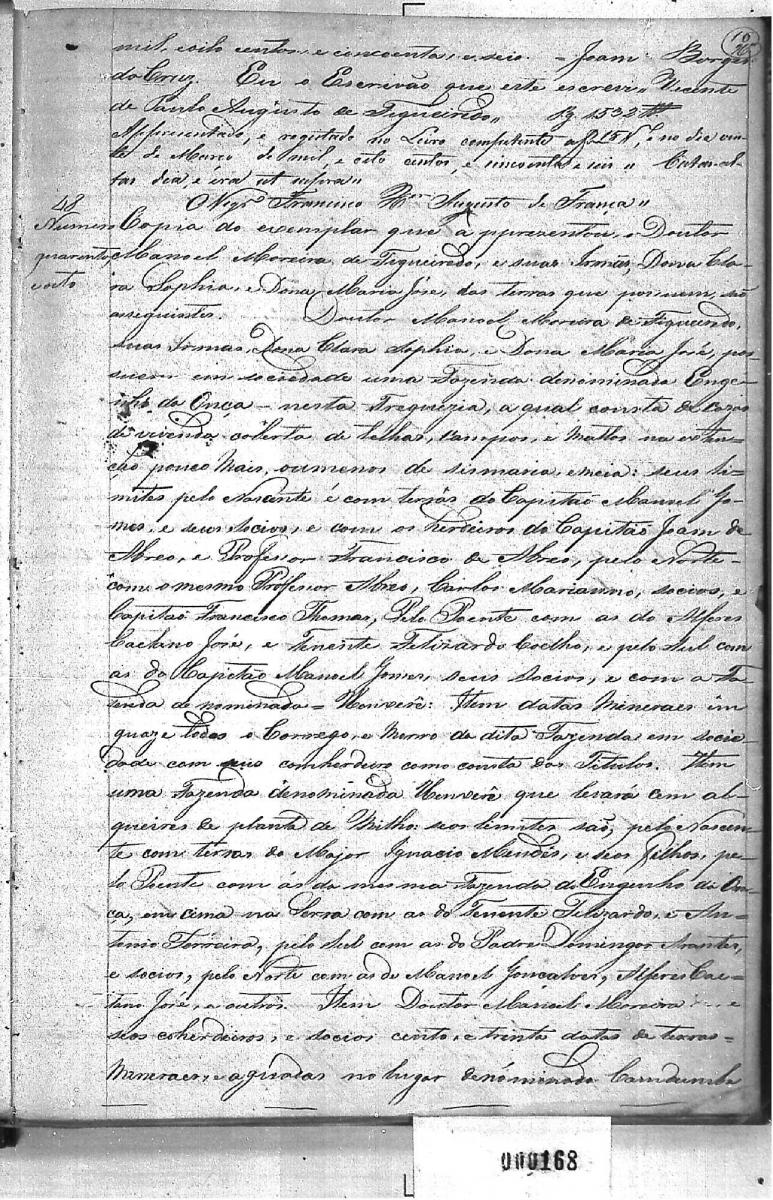 mil. oito centos, e cincoenta, e seis = Joam Borges
da Cruz. Eu o Escrivão que este escrevi " Vicente
de Paulo Augusto de Figueiredo " Pg 1532
Appresentado, e registado no Livro competente a f 15 V, e no dia vin-
te de Março de mil, e oito centos, e cincoenta e seis "
tas dia, e éra ut supra "
O Vigr.º Francisco Augusto de França "
48
Numero
quarenta, e oito
Copia do exemplar que appresentou, o Doutor
Manoel Moreira de Figueiredo, e suas Irmãs, Dona Cla-
ra Sophia, e Dona Maria José, das terras que possuem, são
as seguintes. Doutor Manoel Moreira de Figueiredo,
suas Irmãs, Dona Clara Sophia, e Dona Maria José, pos-
suem em sociedade uma Fazenda denominada Enge-
nho da Onça = nesta Freguezia, a qual consta de cazas
de vivenda coberta de telhas, campos, e Mattos na exten-
ção pouco Mais, ou menos de sismaria, e meia: seus li-
mites pelo Nascente é com terras do Capitão Manoel Go-
mes, e seus socios, e com os herdeiros do Capitão Joam de
Abreo, e Professor Francisco de Abreo, pelo Norte
com o mesmo Professor Abreo, Carlos Marianno, socios, e
Capitão Francisco Thomas, Pelo Poente com as do Alferes
Caetano José, e Tenente Felizardo Coelho, e pelo Sul com
as do Capitão Manoel Gomes, seus socios, e com a Fa-
zenda denominada = : Item datas Mineraes em
quaze todos o Corrego, e Morro da dita Fazenda em socie-
dade com seus comherdeiros como consta dos Titulos. Item
uma Fazenda denominada que levará cem al-
queires de planta de Milho: seos limites são, pelo Nascen-
te com terras do Major Ignacio Mendes, e seos filhos, pe-
lo Poente com ás da mesma Fazenda do Engenho da On-
ça, em cima na Serra com as do Tenente Felizardo, e An-
tonio Ferreira, pelo Sul com as do Padre Domingos Arantes,
e socios, pelo Norte com as de Manoel Gonçalves, Alferes Cae-
tano José, e outros. Item Doutor Manoel Moreira e
seos coherdeiros, e socios cento, e trinta datas de terras
Mineraes, e agoadas no lugar denominado
000168